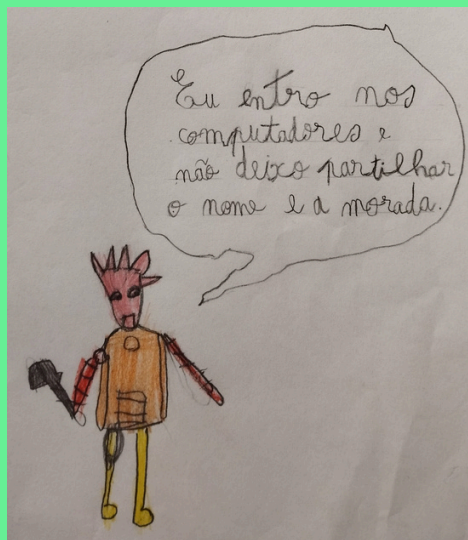 Eu entro nos
computadores e
não deixo partilhar
o nome e a morada.